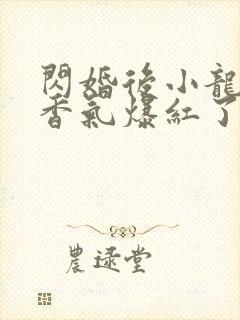 閃婚後小龍
香氣爆紅了
農逯堂